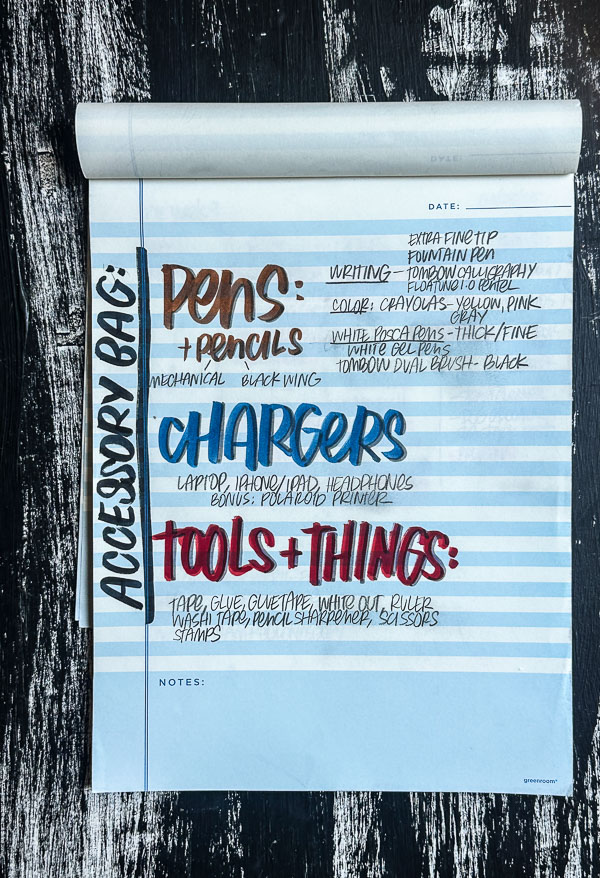 DATE:
ACCESSORY BAG:
PENS:
+ PENCILS
MECHANICAL BLACKWING
EXTRA FINE TIP
FOUNTAIN PEN
WRITING - TOMBOW CALLIGRAPHY
FLOATUNE 1.0 PENTEL
COLOR: CRAYOLAS - YELLOW, PINK
GRAY
WHITE POSCA PENS - THICK/FINE
WHITE GEL PENS
TOMBOW DUAL BRUSH - BLACK
CHARGERS
LAPTOP, IPHONE/IPAD, HEADPHONES
BONUS: POLAROID PRINTER
TOOLS + THINGS:
TAPE, GLUE, GLUETAPE, WHITE OUT, RULER
WASHI TAPE, PENCIL SHARPENER, SCISSORS
STAMPS
NOTES:
greenroom